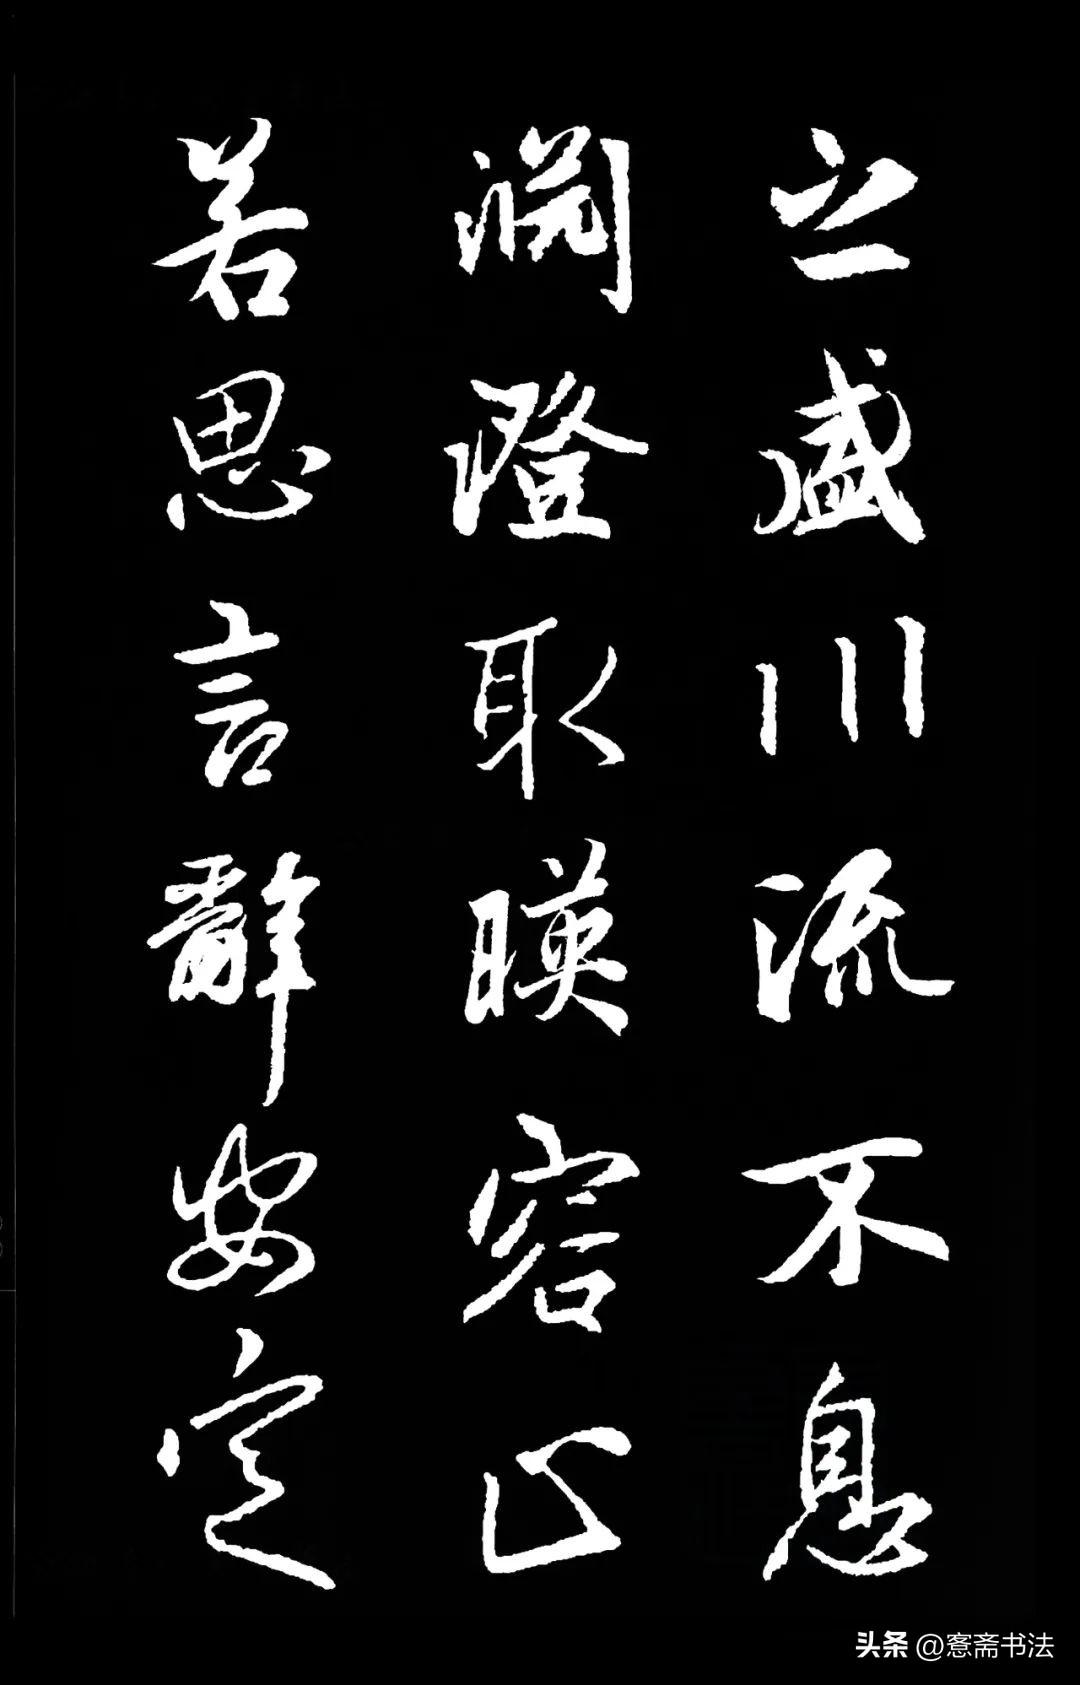 之盛川流不息
渊澄取暎容止
若思言辭安定
头条@窓斋书法